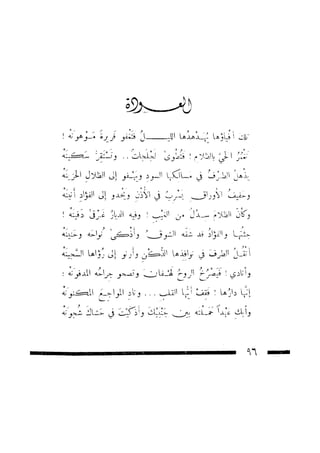 العودة
تلك أفياؤها يهدهدها الليل فتغفو قريرة موهونه !
يعبر الحي بالظلام ! فتطوى خلجات .. وتستقر سكينه
يذهل الطرف في مسالكها السود ويهفو إلى الظلال الحزينه
وحفيف الأوراق يسرب في الأذن ويحدو إلى الفؤاد أنينه
وكأن الظلام سدل من الغيب ! وفيه الديار غرقى دفينه !
جئتها والفؤاد قد شفه الشوق وأذكى نواحه وحنينه
أنقل الطرف في نوافذها الدكن وأرنو إلى رؤاها السجينه
وأنادي : فيصرخ الروح لهفان وتصحو جراحه المدفونه :
إنها دارها : فقف أيها القلب ... وناد المواجع المكنونه
وأبك عهداً حملته بين جنبيك وأذكيت في حشاك شجونه
٩٦